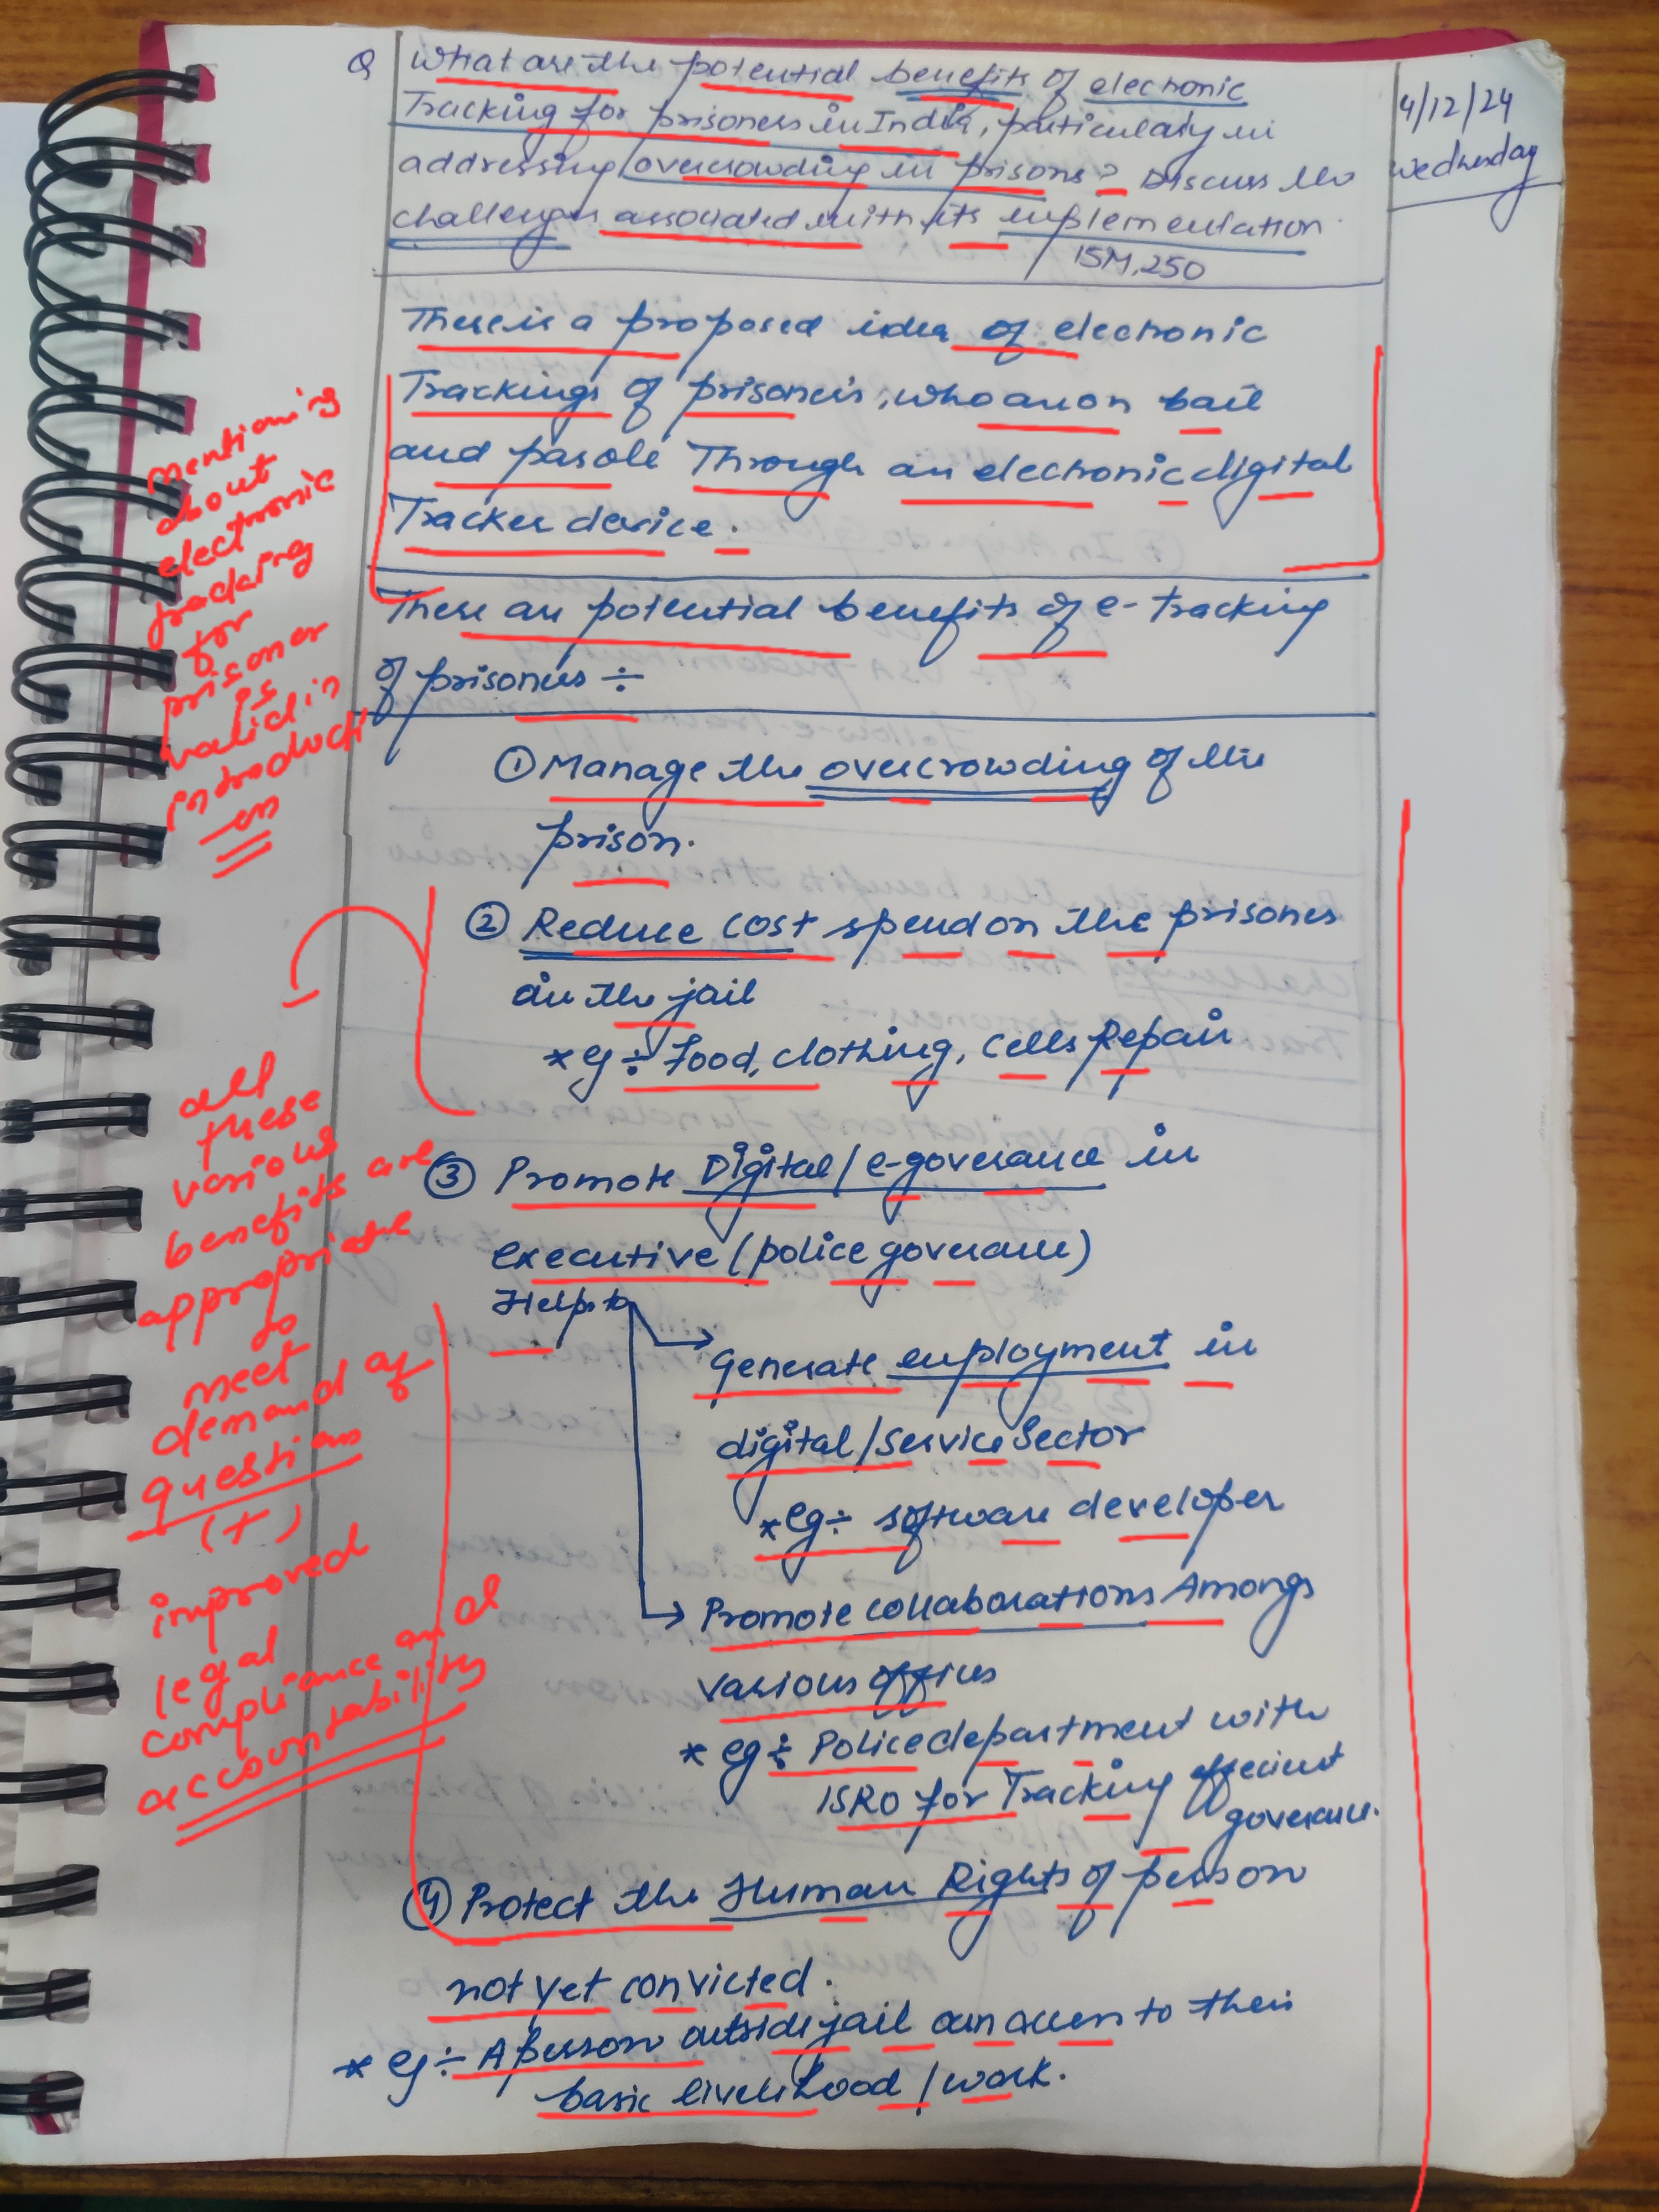 Q What are the potential benefits of elecronic
Tracking for prisoners in India, particulary in
addressing overcrowding in prisons? Discuss the
challenges associated with its implementation.
15M, 250
4/12/24
Wednesday
There is a proposed idea of elecronic
Trackings of prisoners, who are on bail
and parole Through an elecronic digital
Tracker device.
There are potential benefits of e-Tracking
of prisoners ÷
① Manage the overcrowding of the
prison.
② Reduce cost spend on the prisones
in the jail
* eg ÷ Food, clothing, cells Repair
③ Promote Digital / e-goverance in
executive (police goverance)
Helps to
Generate employment in
digital / Service Sector
* eg ÷ software developer
Promote collaborations Amongs
various offices
* eg ÷ Police department with
ISRO for Tracking effecient
goverance.
④ Protect the Human Rights of person
not yet convicted.
* eg ÷ A person outside jail can access to their
basic livelihood / work.
mentioning
about
electronic
tracking
for
prisoner
is
valid in
introducti
on
all
these
various
benefits are
appropriate
to
meet
demand of
question
(+)
improved
legal
compliance and
accountability